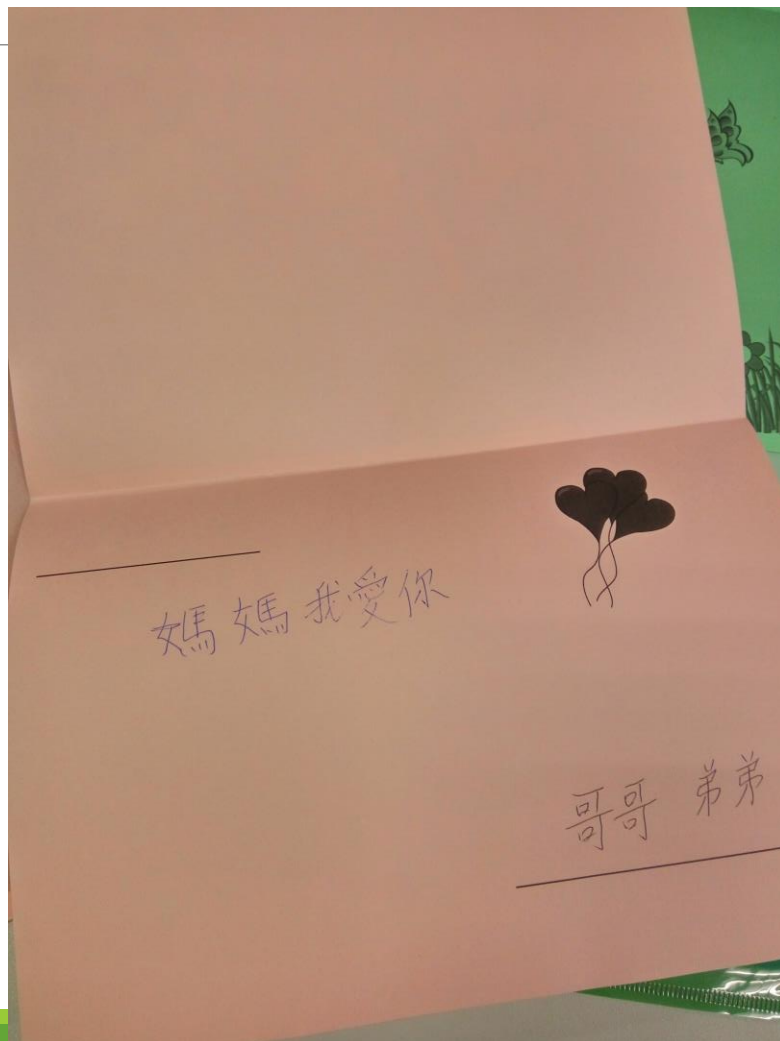 媽媽我愛你
哥哥 弟弟